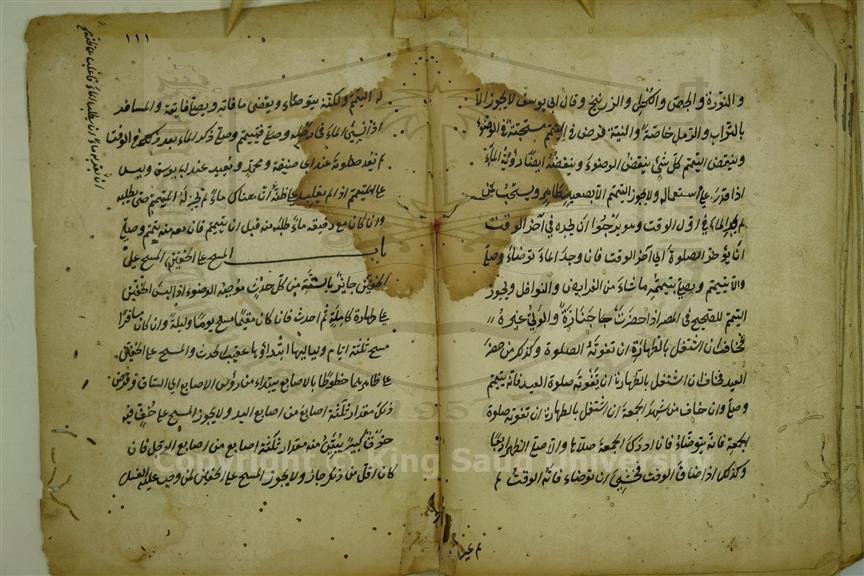 و النورة والجص والكحل والزرنيخ وقال ابو يوسف لا يجوز الا
بالتراب والرمل خاصة والنية فرض في التيمم مستحبة في الوضوء
وينقض التيمم كل شيء ينقض الوضوء وينقضه ايضا رؤية الماء
اذا قدر على استعماله ولا يجوز التيمم الا بصعيد طاهر ويستحب لمن
لم يجد الماء في اول الوقت وهو يرجوا ان يجده في آخر الوقت
ان يؤخر الصلوة الى آخر الوقت فان وجد الماء توضأ وصلى
والا يتيمم ويصلي بتيممه ما شاء من الفرايض والنوافل ويجوز
التيمم للصحيح في المصر اذا حضرت جنازة والولي غيره
فخاف ان اشتغل بالطهارة ان تفوته الصلوة وكذلك من حضر
العيد فخاف ان اشتغل بالطهارة ان يفوته صلوة العيد فانه يتيمم
وصلى وان خاف من شهد الجمعة ان اشتغل بالطهارة ان تفوته صلوة
الجمعة فانه يتوضأ فان ادرك الجمعة صلاها والا صلى الظهر اربعا
وكذلك اذا ضاق الوقت فخشي ان توضاء فاته الوقت لم
لم يجز
١١١
له التيمم ولكنه يتوضاء ويقضي ما فاته ويصلي فايتة والمسافر
اذا نسي الماء في رحله وصلى فيتيمم وصلى ثم ذكر الماء بعد ذلك في الوقت
لم يعد صلوته عند ابي حنيفة ومحمد ويعيد عند ابي يوسف وليس
على المتيمم اذا لم يغلب على ظنه ان هناك ماء لم يجز له التيمم حتى يطلبه
وان كان مع رفيقه ماء طلبه منه قبل ان يتيمم فان منعه منه يتيمم وصلى
باب المسح على الخفين المسح على
الخفين جائز بالسنة من كل حدث موجبه الوضوء اذا لبس الخفين
على طهارة كاملة ثم احدث فان كان مقيما مسح يوما وليلة وان كان مسافرا
مسح ثلثة ايام ولياليها ابتداؤها عقيب الحدث والمسح على الخفين
على ظاهرهما خطوطا بالاصابع يبتداء من رؤس الاصابع الى الساق وفرض
ذلك مقدار ثلثة اصابع من اصابع اليد ولا يجوز المسح على خف فيه
خرق كبير يتبين منه مقدار ثلثة اصابع من اصابع الرجل فان
كان اقل من ذلك جاز ولا يجوز المسح على الخفين لمن وجب عليه الغسل